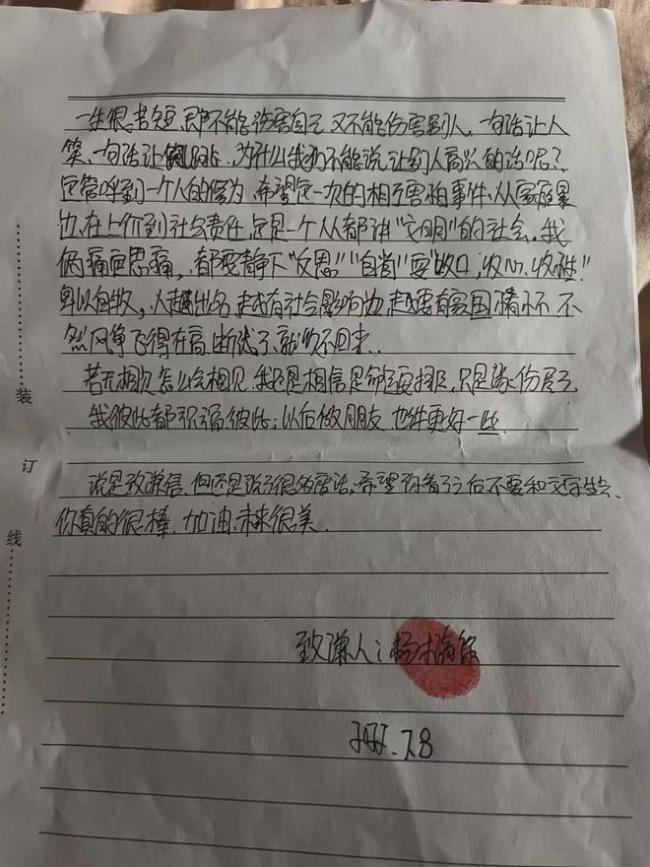 一生很苦短,即不能伤害自己又不能伤害别人,一句话让人
笑、一句话让人跳,为什么我们不能说让别人高兴的话呢?
呼到一个人的 为,希望 一次的相互 事件,从家庭
边,在上 到社会责任, 是一个人人都讲“文明”的社会,我
俩痛定思痛,都要静下“反思”“自省”要“收口,收心,收性!”
卑以自牧,人越出名,越有社会影响 ,越要有氛围情 不
然风筝飞得在高,断线了,就收不回来..
若无相欠,怎么会相见,我还是相信是命运安排,只是缘份尽了,
我彼此都祝福彼此;以后做朋友也许更好一些.
说是致谦信,但还是说了很多 话,希望你看了之后不要和 生气,
你真的很棒,加油,未来很美.
致谦人:杨
7.8
装
订
线